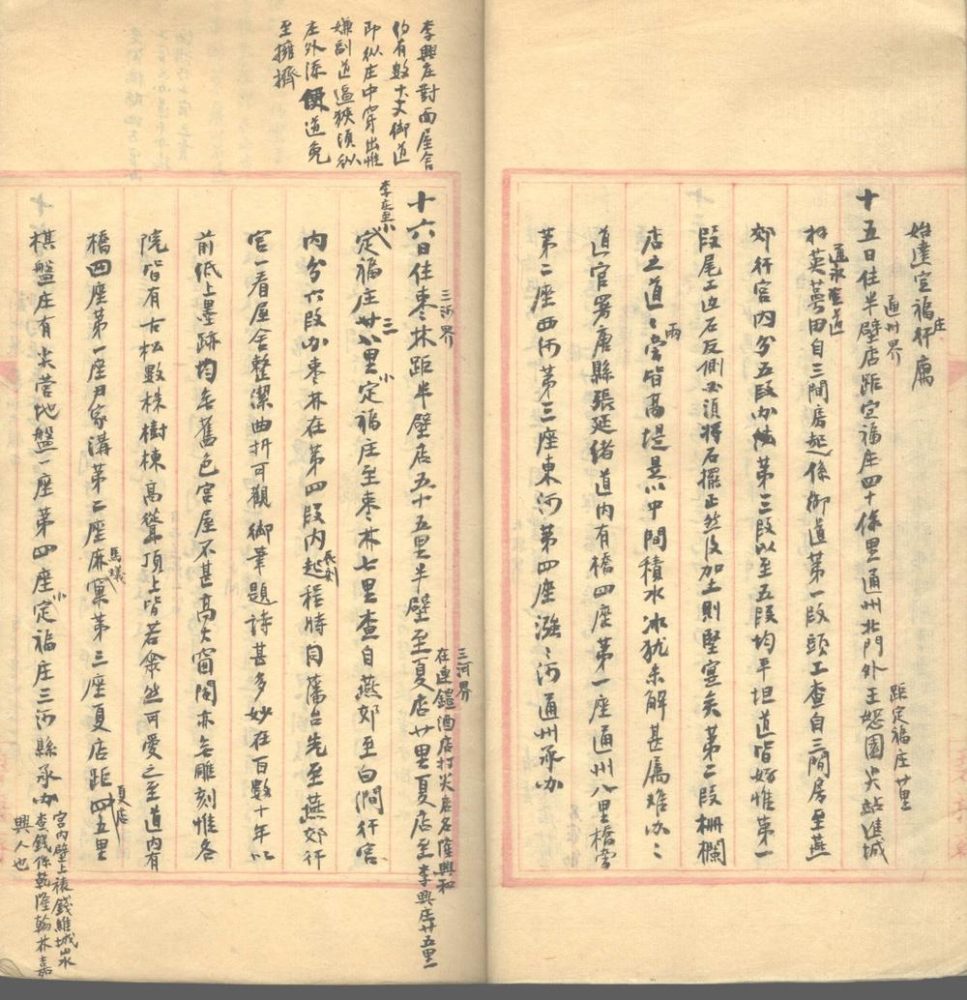 始達定福庄行寓
通州界
十五日住半壁店距定福庄四十係里通州北門外王恕園尖站進城
距定福庄廿里
拈英萼田自三間房起係御道第一段頭工查自三間房至燕
道永查道
郊行宮内分五段办第三段以至五段均平坦道皆好惟第一
段尾工边石反側必須將石擺正然後加土則堅寔矣第二段柵欄
店之道之兩旁皆高堤是以中間積水冰犹未解甚属难办之
道官署唐縣張延緒道内有橋四座第一座通州八里橋旁
第二座西河第三座東河第四座漲之河通州承办
李興庄對面屋舍
约有数十丈御道
即从庄中穿出惟
嫌副道逼狹須从
庄外添便道免
至擁擠
三河界
十六日住枣林距半壁店五十五里半壁至夏店廿里夏店至李興庄廿五里
三河界
在連鑣酒店打尖店名隆興和
李庄至小
定福庄廿三里小定福庄至枣林七里查自燕郊至白澗行宮
内分六段办枣林在第四段内起程時同藩台先至燕郊行
宮一看屋舍整潔曲折可觀御筆題詩甚多妙在百數十年以
前低上墨跡均無舊色宮屋不甚高大窗閣亦無雕刻惟各
院皆有古松數株樹棟高聳頂上皆若傘然可愛之至道内有
橋四座第一座尹家溝第二座馬蟻窠第三座夏店距夏店四五里
棋盤庄有尖营地盤一座第四座小定福庄三河縣承办
宮内壁上裱錢維城山水
查錢係乾隆翰林嘉
興人也